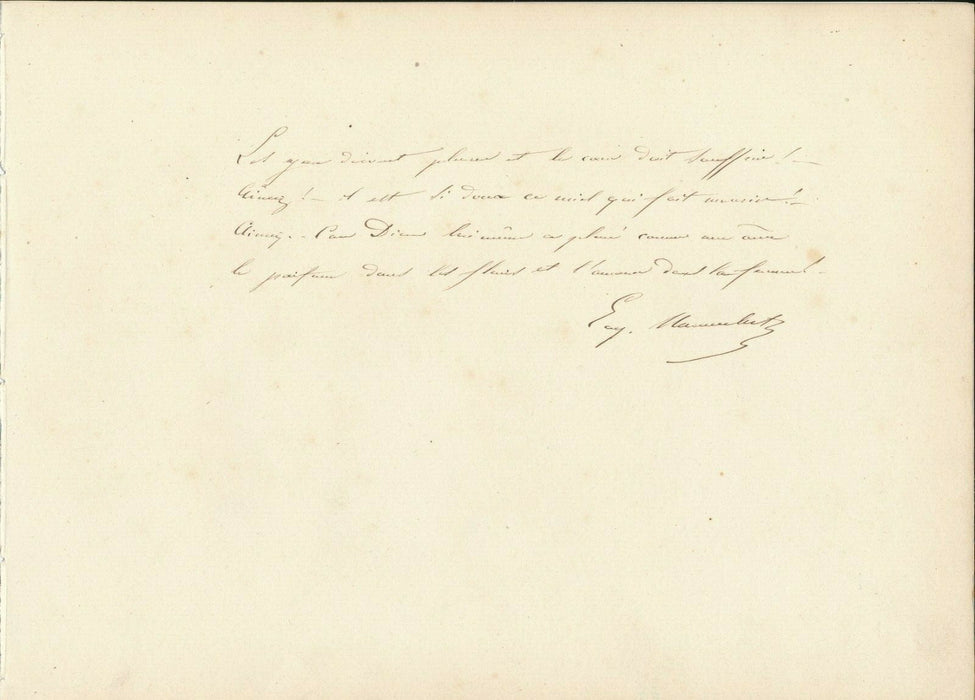 Les yeux doivent pleurer et le cœur doit souffrir ! —
Aimez ! — il est si doux ce miel qui fait mourir ! —
Aimez. - Car Dieu lui même a placé comme une âme
le parfum dans les fleurs et l'amour dans la femme ! -
Eug.